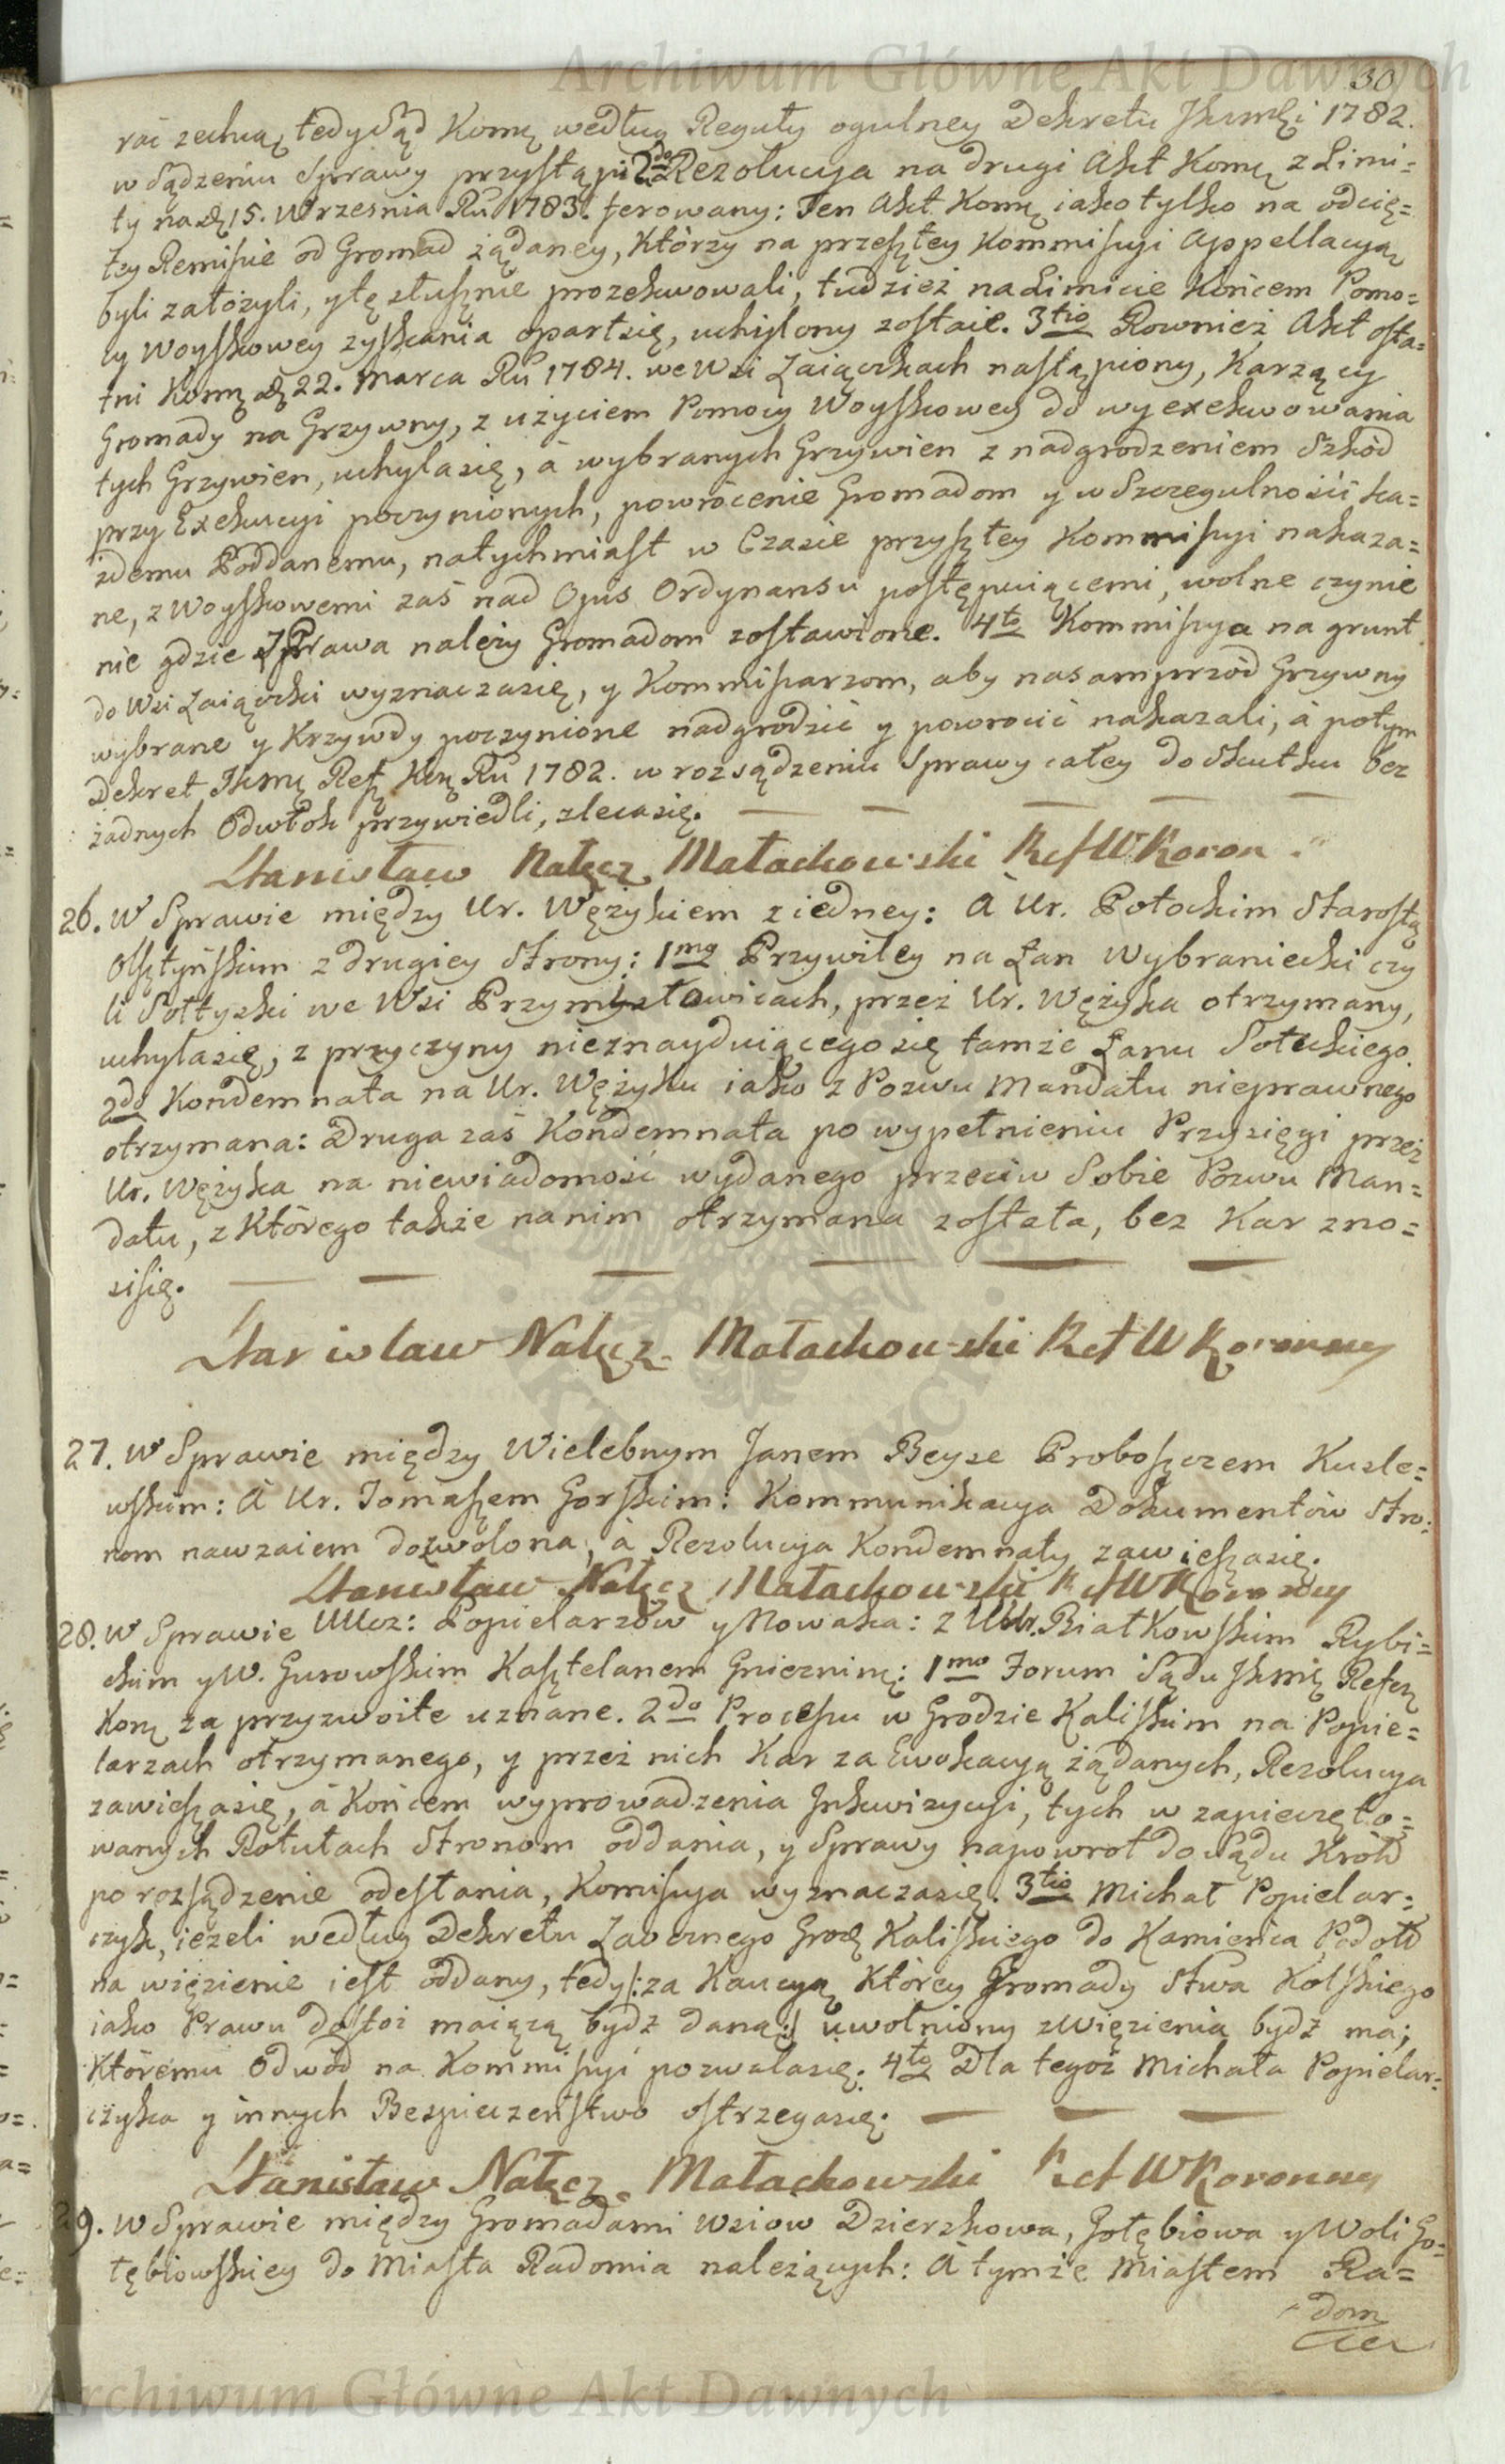 Archiwum Główne Akt Dawnych
30
rać zechcą, tedy Sąd Komṃ według Reguły ogulney Dekretu 1782.
w Sądzeniu Sprawy przystąpi 2do Rezolucya na drugi Akt Komṃ z Limi=
ty na d. 15. Wrzesnia Ru 1783. ferowany: Ten Akt Komṃ iako tylko na odcię=
tey Remissie od Gromad żądaney, Którzy na przeszłey Kommissyi Appellacyą
byli założyli, y tę słusznie prozekwowali, tudzież na Limicie Końcem Pomo=
cy Woyskowey zyskania opart się, uchylony zostaie. 3tio Rownież Akt osta=
tni Komṃ d. 22. Marca Ru 1784. we Wsi Zaiączkach nastąpiony, Karzący
Gromady na Grzywny, z użyciem Pomocy Woyskowey do wyexekwowania
tych Grzywien, uchyla się, à wybranych Grzywien z nadgrodzeniem Szkód
przy Exekucyi poczynionych, powrócenie Gromadom y w Szczegulności ka=
żdemu Poddanemu, natychmiast w Czasie przyszłey Kommissyi nakaza=
ne, z Woyskowemi zaś nad Opis Ordynansu postępuiącemi, wolne czynie
nie gdzie z Prawa należy Gromadom zostawione. 4to Kommissya na grunt
do Wsi Zaiączki wyznacza się, y Kommissarzom, aby nasamprzód Grzywny
wybrane y Krzywdy poczynione nadgrodzić y powrocić nakazali, à potym
Dekret Ru 1782. w rozsądzeniu Sprawy całey do Skutku bez
żadnych Odwłok przywiedli, zleca się.
Stanisław Nałęcz Małachowski Ref W Koron
26. W Sprawie między Ur. Wężykiem z iedney: A Ur. Potockim Starostą
Olsztyńskim z drugiey Strony: 1mo Przywiley na Łan Wybraniecki czy
li Sołtyski we Wsi Przymiłowicach, przez Ur. Wężyka otrzymany,
uchyla się, z przyczyny nieznayduiącego się tamże Łanu Soleckiego.
2do Kondemnata na Ur. Wężyku iako z Pozwu Mandatu nieprawnego
otrzymana: Druga zaś Kondemnata po wypełnieniu Przysięgi przez
Ur. Wężyka na niewiadomość wydanego przeciw Sobie Pozwu Man=
datu, z Którego także na nim otrzymana została, bez Kar zno=
si się.
Stanisław Nałęcz Małachowski Ref W Koronny
27. W Sprawie między Wielebnym Janem Beyze Proboszczem Kuzle=
wskim: A Ur. Tomaszem Gorskim: Kommunikacya Dokumentów Stro=
nom nawzaiem dozwolona, à Rezolucya Kondemnaty zawiesza się.
Stanisław Nałęcz Małachowski Ref W Koronny
28. W Sprawie Popielarzów y Nowaka: z Białkowskim Rybi=
ckim y W. Gurowskim Kasztelanem 1mo Forum Sądu Refṛ
Korṃ za przyzwoite uznane. 2do Processu w Grodzie Kaliskim na Popie=
larzach otrzymanego, y przez nich Kar za Ewokacyą żądanych, Rezolucya
zawiesza się, à Końcem wyprowadzenia Inkwizycyi, tych w zapieczęto=
wanych Rotułach Stronom oddania, y Sprawy napowrot do Sądu Król
po rozsądzenie odesłania, Komissya wyznacza się. 3tio Michał Popielar=
czyk, ieżeli według Dekretu Zaocznego Grodz Kaliskiego do Kamieńca Podol
na więzienie iest oddany, tedy /:za Kaucyą Którey Gromady Stwa Kolskiego
iako Prawu dosłoż maiącą bydz daną:/ uwolniony z więzienia bydz ma;
Któremu Odwód na Kommissyi pozwala się. 4to Dla tegoż Michała Popielar=
czyka y innych Bezpieczeństwo ostrzega się.
Stanisław Nałęcz Małachowski Ref W Koronny
29. W Sprawie między Gromadami Wsiow Dzierzkowa, Gołębiowa y Woli Go=
łębiowskiey do Miasta Radomia należących: A tymże Miastem Ra=
dom
Archiwum Główne Akt Dawnych